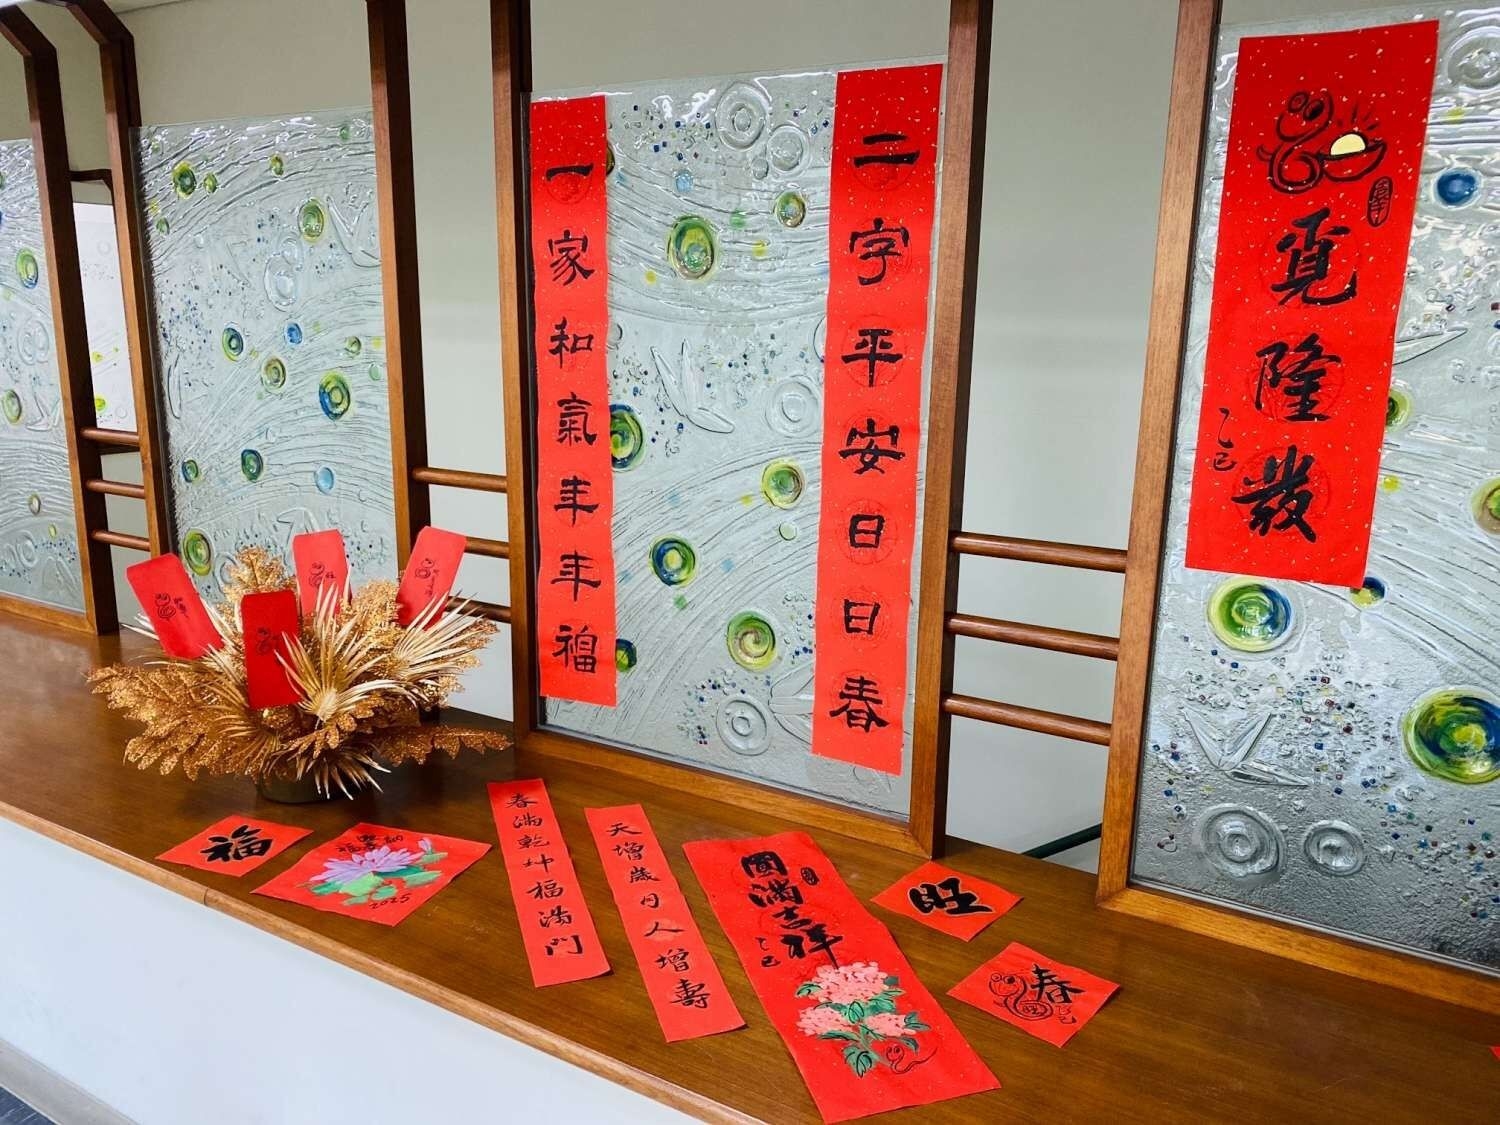 二字平安日日春
一家和氣年年福
覔隆發
乙巳
福
2025
春滿乾坤福滿門
天增歲月人增壽
圓滿吉祥
乙巳
旺
春
乙巳
旺